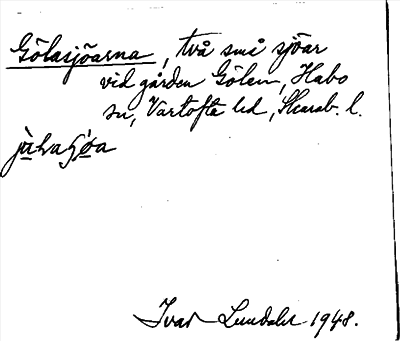 Gölasjöarna, två små sjöar
vid gården Gölen, Habo
sn, Vartofta hd, Skarab. l.
Ivar Lundahl 1948.